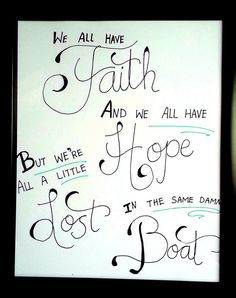 We all have
Faith
And we all have
Hope
But we're
all a little
Lost
In the same damn
Boat